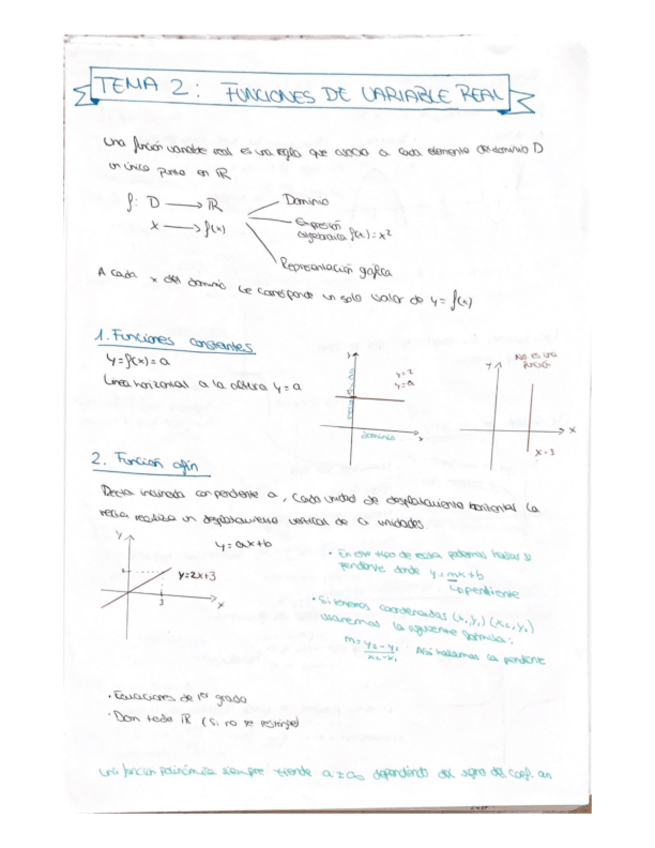 TEMA 2: FUNCIONES DE VARIABLE REAL
Una función variable real es una regla que asocia a cada elemento del dominio D
un único punto en ℝ
f: D → ℝ
x → f(x)
Dominio
Expresión
algebraica f(x)=x²
Representación gráfica
A cada x del dominio le corresponde un solo valor de y = f(x)
1. Funciones constantes
y=f(x)=a
Línea horizontal a la altura y = a
y
y=2
y=a
dominio
x
y
NO ES UNA
FUNCIÓN
x
x=3
2. Función afín
Recta inclinada con pendiente a, cada unidad de desplazamiento horizontal la
recta realiza un desplazamiento vertical de a unidades.
y = ax+b
y
y=2x+3
3
x
· En este tipo de recta podemos hallar su
pendiente donde y = mx+b
pendiente
· Si tenemos coordenadas (x₁,y₁) (x₂,y₂)
usaremos la siguiente fórmula:
m= y₂-y₁ / x₂-x₁ Así hallamos la pendiente
· Ecuaciones de 1er grado
· Dom todo ℝ (Si no se restringe)
una función polinómica siempre tiende a ±∞ dependiendo del signo del coef. an